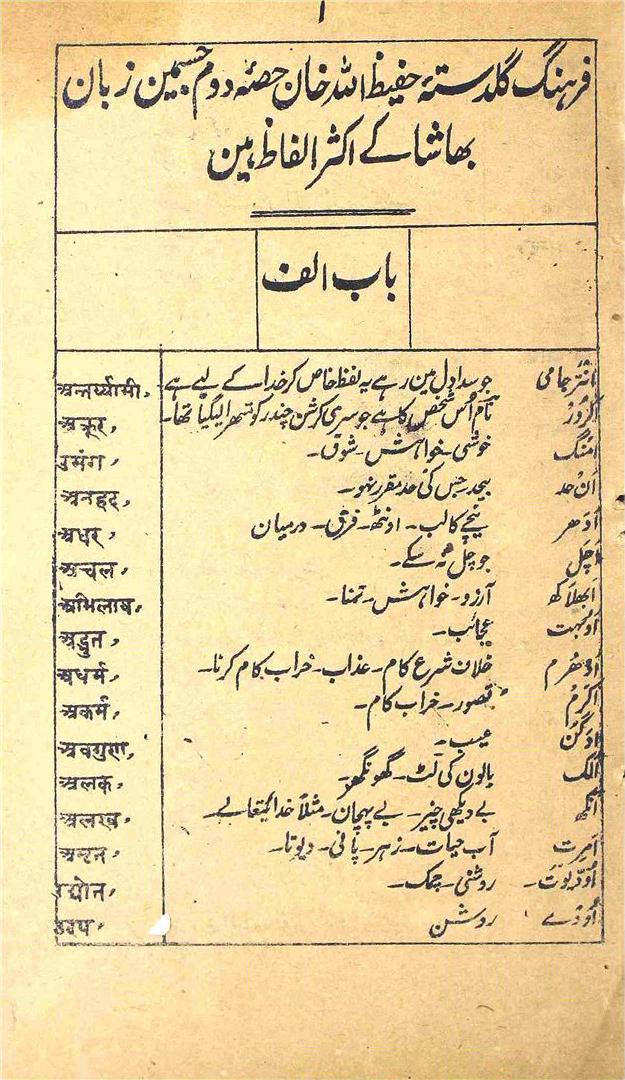 ۱
فرہنگ گلدستۂ حفیظ اللہ خان حصّہ دوم جسمین زبان
بھاشا کے اکثر الفاظ ہین
باب الف
انترجامی جو سدا دل مین رہے یہ لفظ خاص کر خدا کے لیے ہے अन्तर्य्यामी,
اکرور نام اُس شخص کا ہے جو سری کرشن چندر کو متھرا لیگیا تھا۔ अक्रूर,
امنگ خوشی۔ خواہش۔ شوق۔ उमंग,
اَن حد بیحد جس کی حد مقرر نہو۔ अनहद,
اَدھر نیچے کا لب۔ اونٹھ۔ فرق۔ درمیان अधर,
اَچل جو چل نہ سکے۔ अचल,
اَبھلاکھ آرزو۔ خواہش۔ تمنا۔ अभिलाष,
عجائب۔ अद्भुत,
اَدھرم خلاف شرع کام۔ عذاب۔ خراب کام کرنا۔ अधर्म,
اَکرم قصور۔ خراب کام۔ अकर्म,
اوگُن عیب۔ अवगुण,
اَلک بالون کی لٹ۔ گھونگھر۔ अलक,
الکھ بے دیکھی چیز۔ بے پہچان۔ مثلاً خدایتعالےٰ۔ अलख,
اَمرت آب حیات۔ زہر۔ پانی۔ دیوتا۔ अमृत,
اُودّیوت۔ روشنی۔ چمک۔ उद्योत,
اُودے روشن उदय,